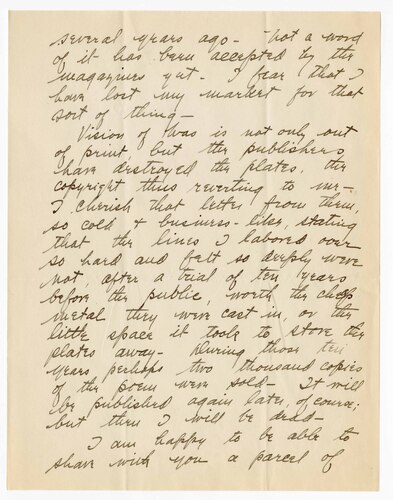 several years ago - Not a word
of it has been accepted by the
magazines yet - I fear that I
have lost my market for that
sort of thing -
Vision of War is not only out
of print but the publishers
have destroyed the plates, the
copyright thus reverting to me -
I cherish that letter from them,
so cold & business-like, stating
that the lines I labored over
so hard and felt so deeply were
not, after a trial of ten years
before the public, worth the cheap
metal they were cast in, or the
little space it took to store the
plates away - During those ten
years perhaps two thousand copies
of the poem were sold - It will
be published again later, of course;
but then I will be dead -
I am happy to be able to
share with you a parcel of